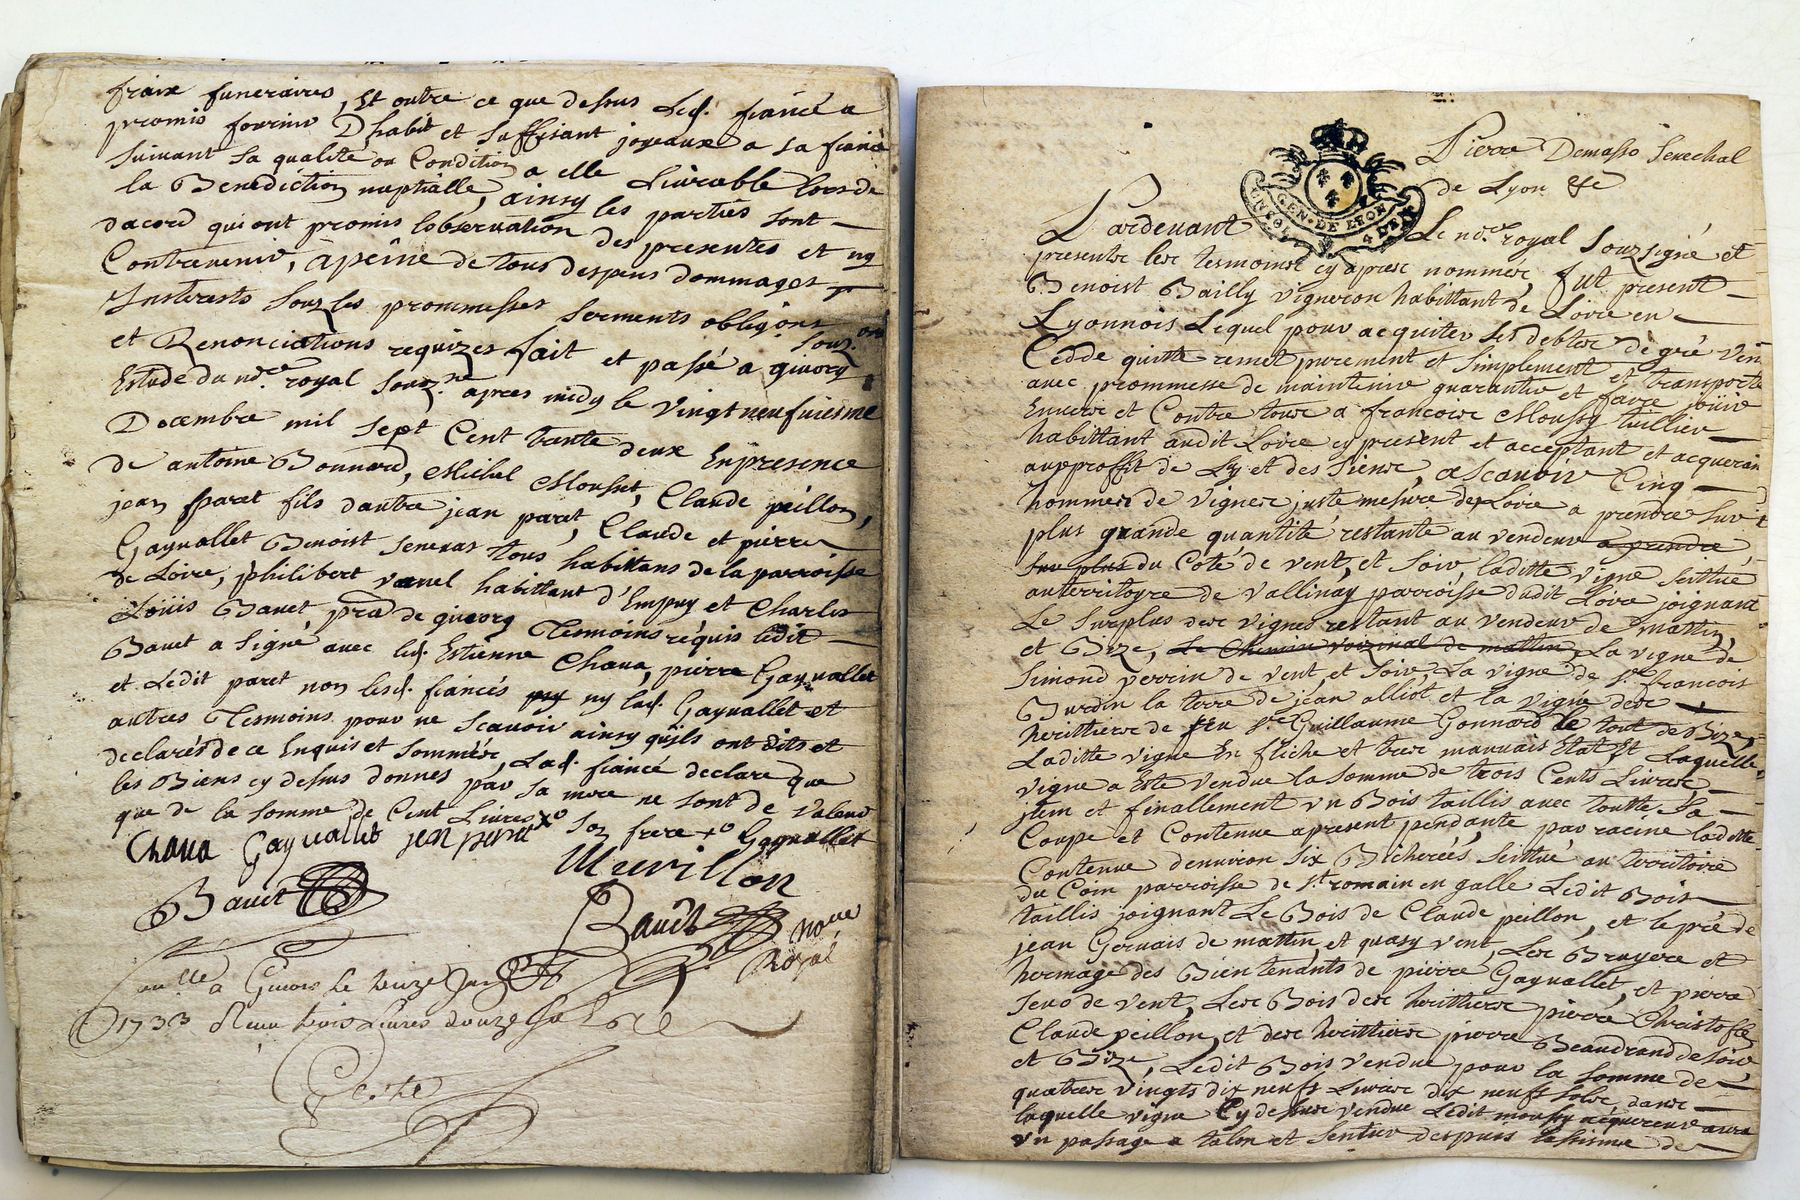 fraix funeraires, Et outre ce que dessus led. fiancé a
promis fournir Dhabit et suffisant joyeaux a sa fiancé
suivant sa qualité ou Condition a elle Livrable lors de
la Benediction nuptialle, ainsy les parties sont
dacord qui ont promis lobservation des presentes et ny
Contrevenir, à peîne de tous despens dommages
Interests souz les prommesses serments obligons
et Renonciations requizes fait et passé a givors
Estude du nore. royal souz.né apres midy le vingt neufuiesme
Decembre mil sept Cent trente deux En presence
de antoine Bonnard, Michel Mousset, Claude peillon,
jean paret fils dautre jean paret, Claude et pierre
Gayvallet Benoist seneras tous habittans de la parroisse
de Loire, philibert vanel habittant d'Empuy et Charles
Loüis Bauet, prad. de givors Tesmoins requis ledit
Bauet a signé avec led. Estienne Chaua, pierre Gayvallet
et Ledit paret non lesd. fiancés ny lad. Gayvallet et
autres Tesmoins pour ne scavoir ainsy quils ont dits et
declarés de ce Enquis et sommés, Lad. fiancé declare que
les Biens cy dessus donnes par sa mere ne sont de valeur
que de la somme de Cent Livres xo son frere xo Gayvallet
Chaua Gayvallet jean paret
Murillon
Bauet Baudt nore
Royal
a Givors Le
1733 Receu trois Livres douze sols
Pierre Demasso Senechal
de Lyon &c
GEN. DE LYON
Pardevant Le nore. royal souzsigné et
presents les tesmoins cy apres nommés, fut present
Benoist Bailly vigneron habittant de Loire en
Lyonnois Lequel pour acquiter ses debtes de gré vend
Cedde quitte remet purement et simplement et transporte
avec prommesse de maintenir guarantir et faire joüir
Envers et Contre tous a françois Moussy tuillier
habittant audit Loire cy present et acceptant et acquerant
au proffit de Luy et des siens, a scavoir Cinq
hommes de vignes juste mesure de Loire a prendre sur
plus grande quantité restante au vendeur a prendre
sur plus du Coté de vent, et soir, laditte vigne scittué
au territoyre de Vallinay parroisse dudit Loire joignant
Le surplus des vignes restant au vendeur de mattin,
et Bize, Le Chemin voizinal de mattin, La vigne de
Simond perrin de vent et soir, La vigne de sr. françois
Burdin la terre de jean alliot et la vigne des
herittiers de feu sr. Guillaume Gonnard le tout de Bize,
Laditte vigne En friche et tres mauvais Etat, Laquelle
vigne a Esté vendue la somme de trois Cents Livres
jtem et finallement vn Bois taillis avec toutte sa
Coupe et Contenue apresent pendante par racine laditte
Contenue denviron six Bicherées, scittué au territoire
du Coin parroisse de st. romain en galle Ledit Bois
taillis joignant Le Bois de Claude peillon, et le pré de
jean Gervais de mattin et quasy vent, Les Bruyere et
hermage des Bientenants de pierre Gayvallet, et pierre
seno de vent, Les Bois des herittiers pierre Christofle
Claude peillon et des herittiers pierre Beaudrand de soir
et Bize, Ledit Bois vendue pour la somme de
quatres vingts dix neufs Livres dix neufs sols, dans
laquelle vigne Cy dessus vendue Ledit moussy acquereur aura
vn passage a talon et sentier despuis le de